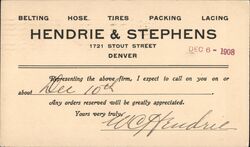 BELTING HOSE. TIRES PACKING LACING
HENDRIE & STEPHENS
1721 STOUT STREET
DENVER
DEC 6 - 1908
Representing the above firm, I expect to call on you on or
about Dec 10th
Any orders reserved will be greatly appreciated.
Yours very truly,
W.C. Hendrie